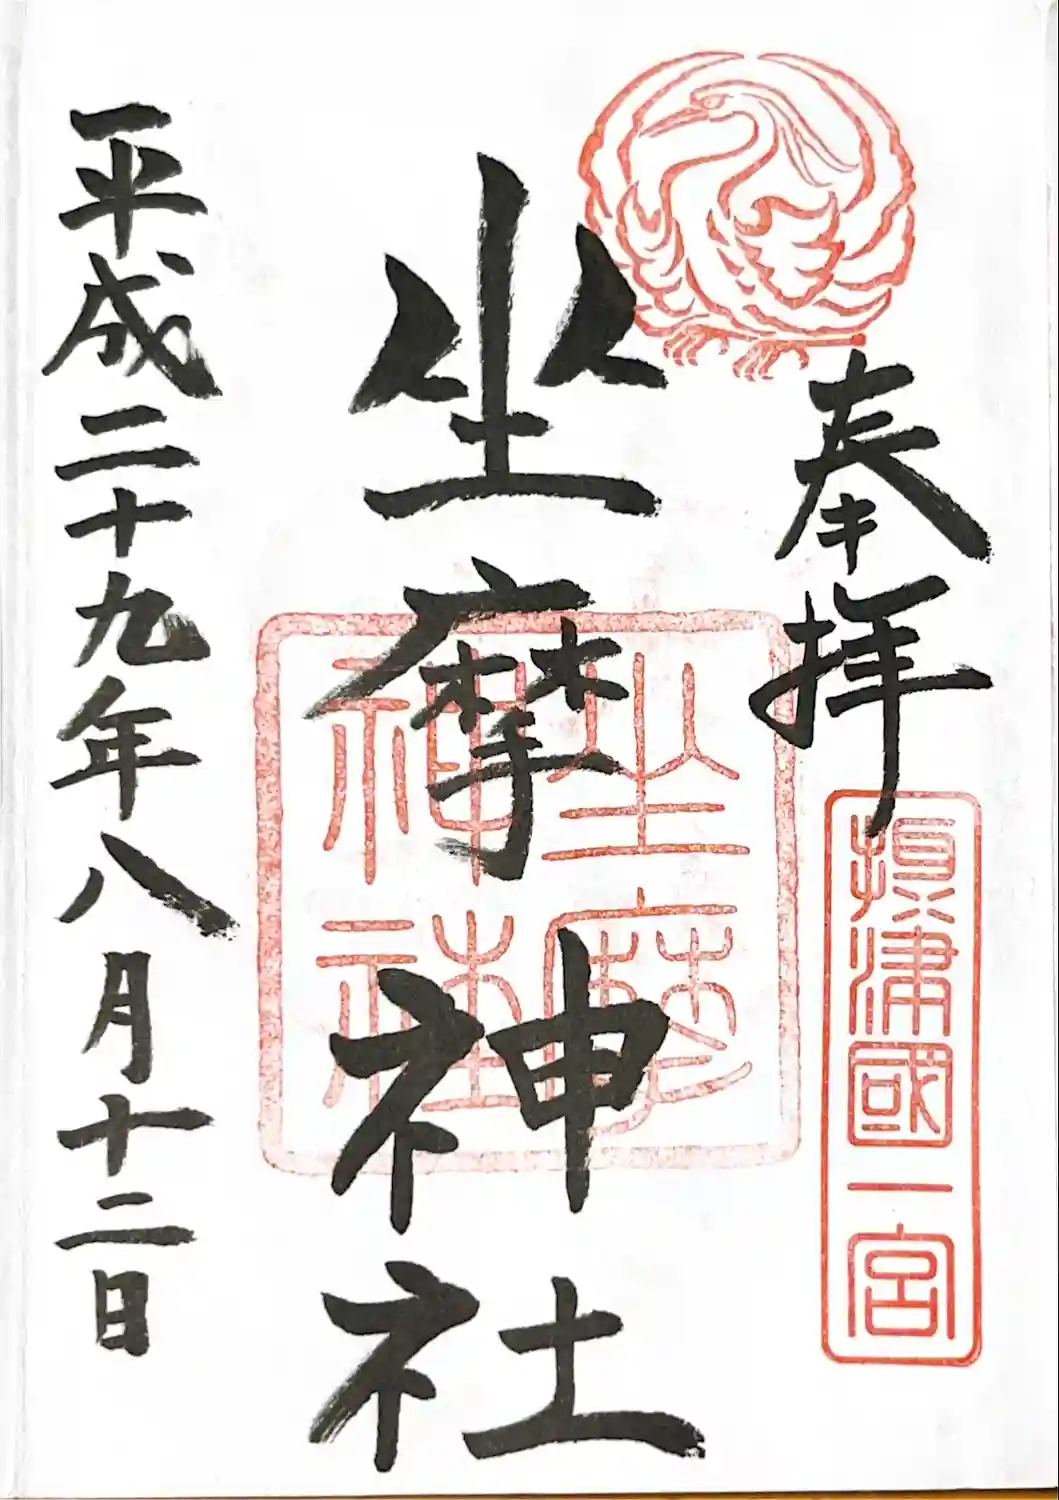 奉拝
摂津國一宮
坐摩神社
坐摩神社
平成二十九年八月十二日